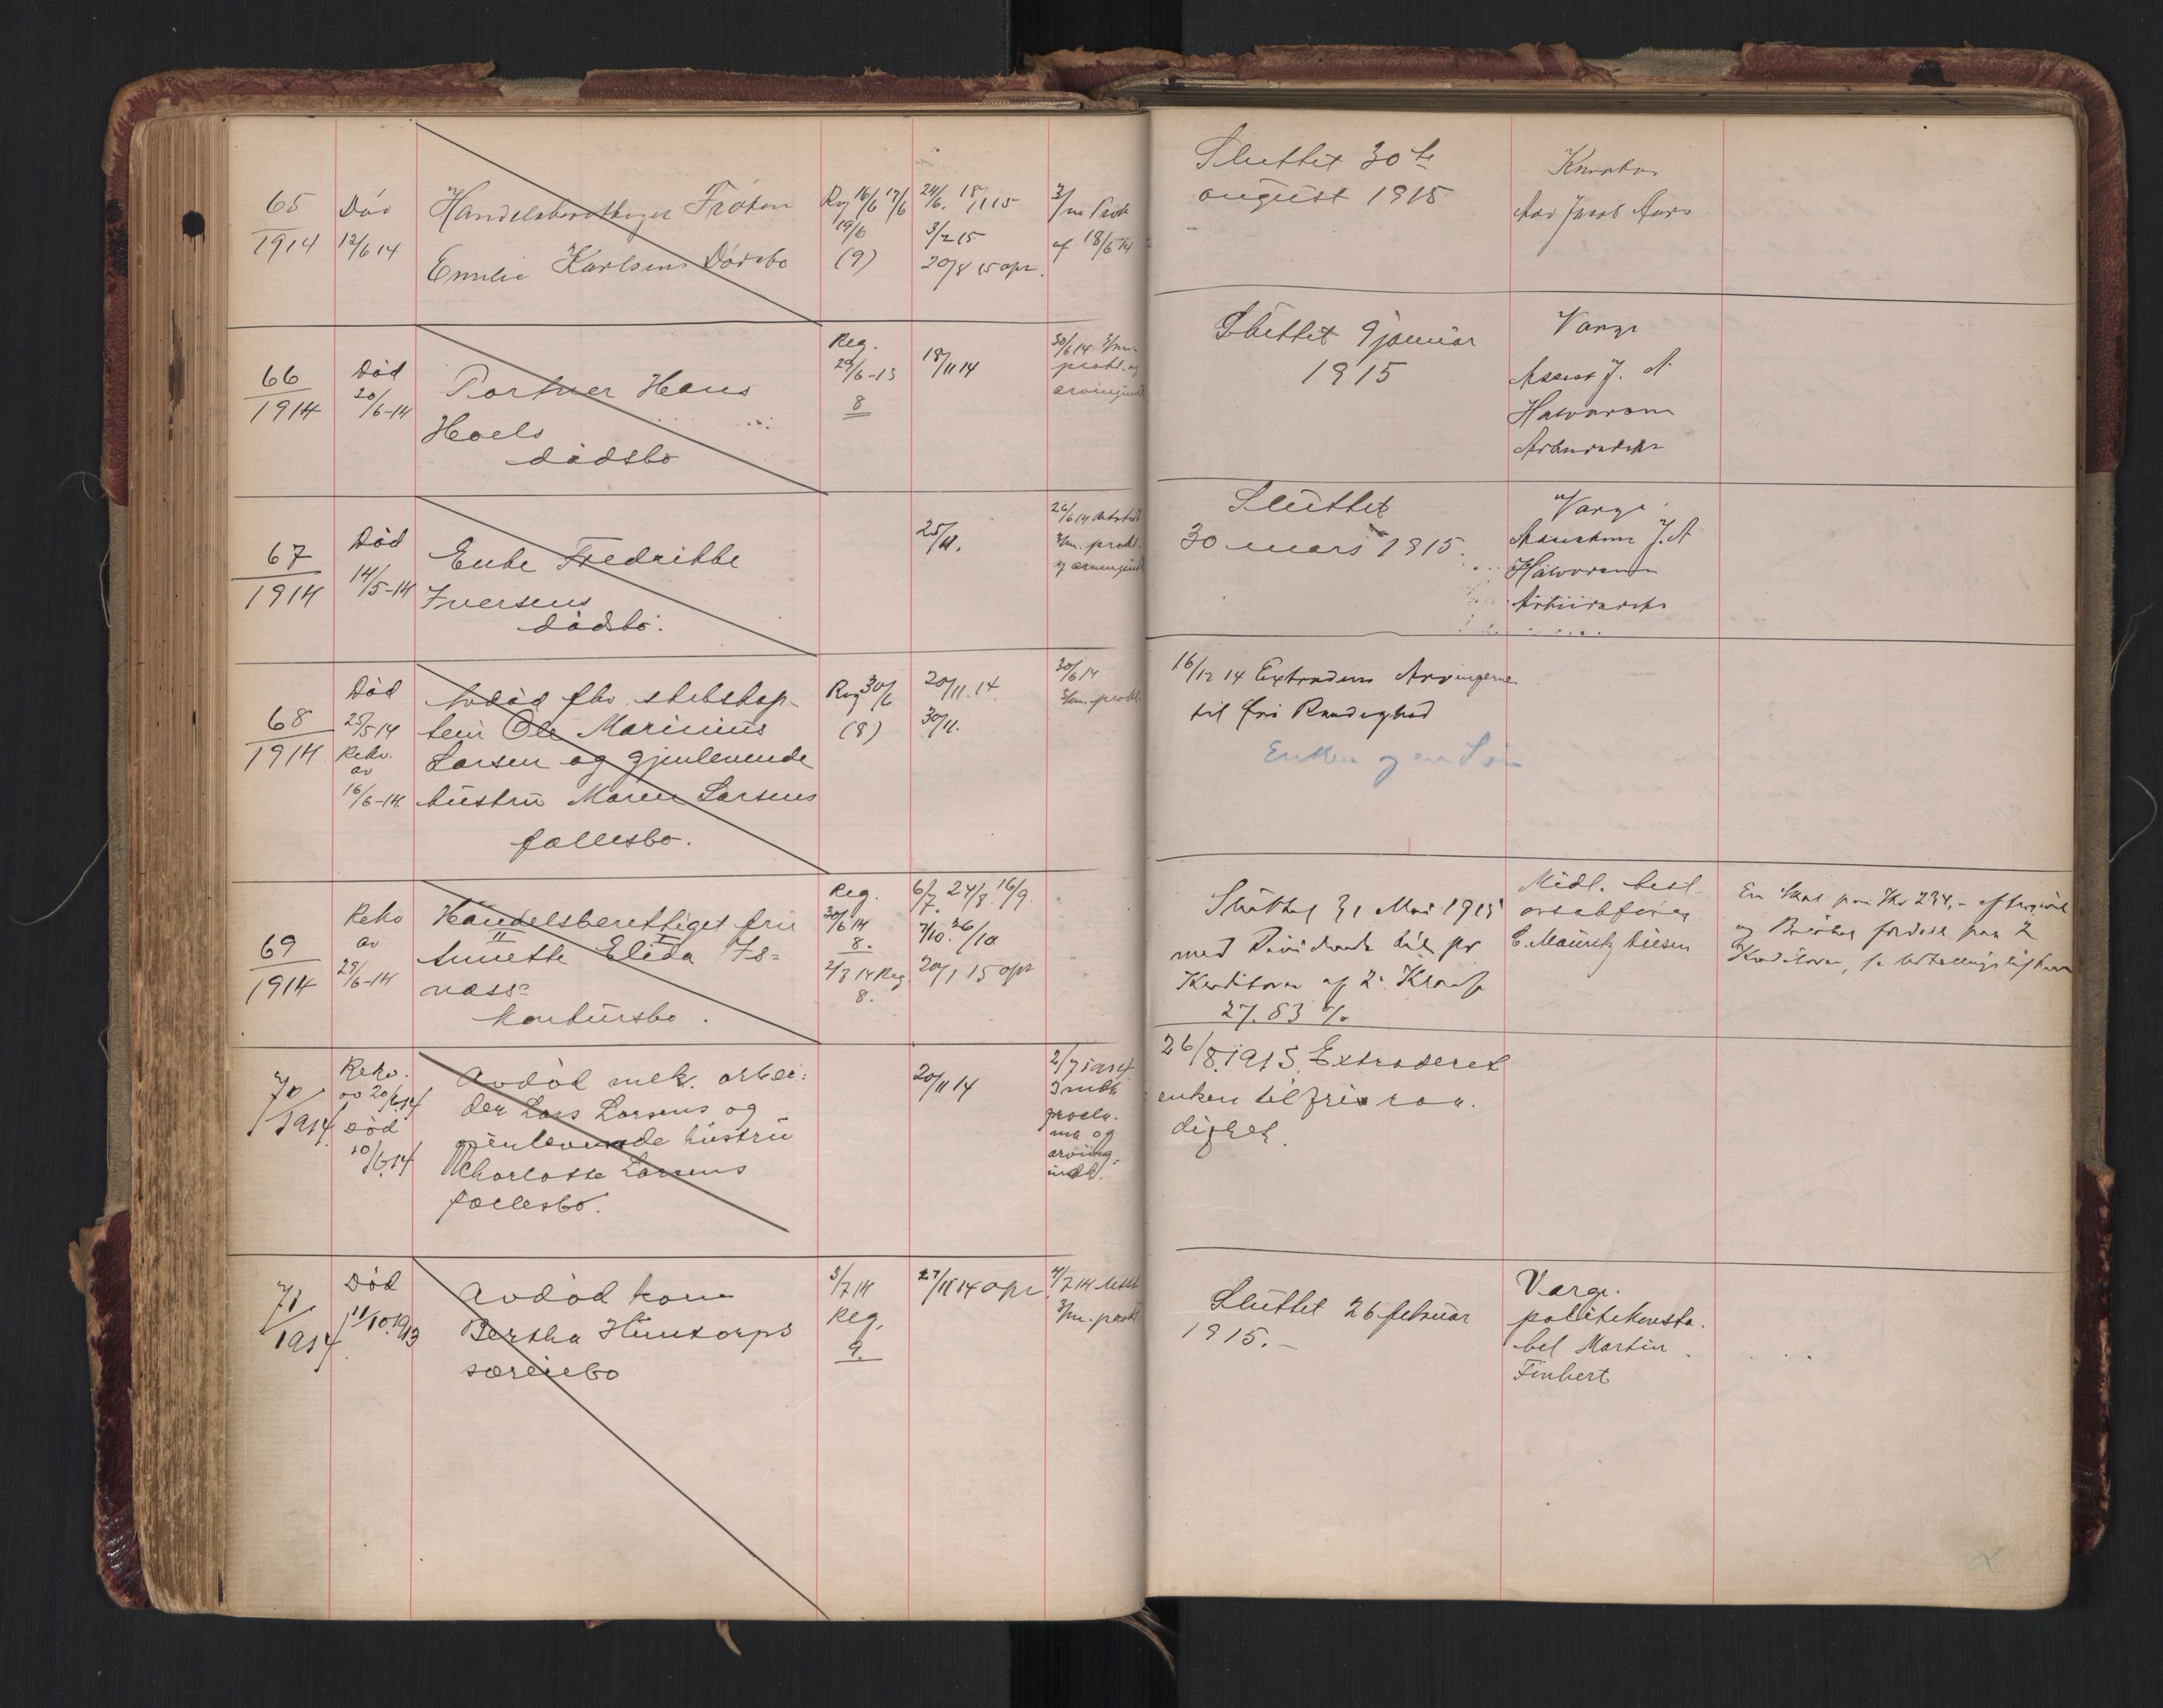 65
1914
Død
12/6 14
Handelsberettiget Frøken
Emilie Karlsens Dødsbo
Reg 16/6 17/6
19/6
(9)
24/6. 18/1 15
3/2 15
20/8 15 opr.
3/m Prok
af 18/6 14
Sluttet 30te
august 1915
Jacob Aars
66
1914
Død
20/6-14
Portner Hans
Hoels
dødsbo
Reg.
29/6-13
8
18/11 14
30/6 14 3/mn.
prokl. og
arvingindk
Sluttet 9 januar
1915
Verge
J. A.
Halvorsen
67
1914
Død
14/5-14
Enke Fredrikke
Iversens
dødsbo.
25/11.
26/6 14
3/m. prokl.
og arvingindk
Sluttet
30 mars 1915.
Verge
J. A
Halvorsen
68
1914
Død
25/5 14
Rekv.
av
16/6-14.
Avdød fhv. skibskap-
tein Ole Marinius
Larsen og gjenlevende
hustru Maren Larsens
fællesbo.
Reg 30/6
(8)
20/11. 14
30/11.
30/6 14
3/m. prokl.
16/12 14 Extraderes Arvingerne
til fri Raadighed
Enken og en Søn
69
1914
Rekv
av
29/6-14
Handelsberettiget fru
Annette Elida Is-
næss
konkursbo.
Reg.
30/6 14
8.
2/7 14 Reg
8.
6/7. 24/8. 16/9.
7/10. 26/10
20/1 15 opr
Sluttet 31 Mai 1915
med Dividende til pr
Kreditorer af 2. Klasse
27.83 %
Midl. best.
orsabfører
E. Mauritz Nilsen
En Skat paa Kr 234,- eftergivet
og Beløbet fordelt paa 2
Kreditorer, se
70
1914
Rekv.
av 20/6 14
Død
10/6 14
Avdød mek. arbei-
der Lars Larsens og
gjenlevende hustru
Charlotte Larsens
fællesbo.
20/11 14
2/7 1914
3 mdr
procla-
ma og
arving-
indk.
26/8. 1915. Extraderet
enken til fri raa-
dighet.
71
1914
Død
11/10 1913
Avdød kone
Bertha Huntorps
særeiebo
3/7 14
Reg.
9.
27/11 14 opr.
4/7 14 Utst
3/m. prokl.
Sluttet 26 februar
1915.-
Verge.
politikonsta-
bel Martin
Finbert